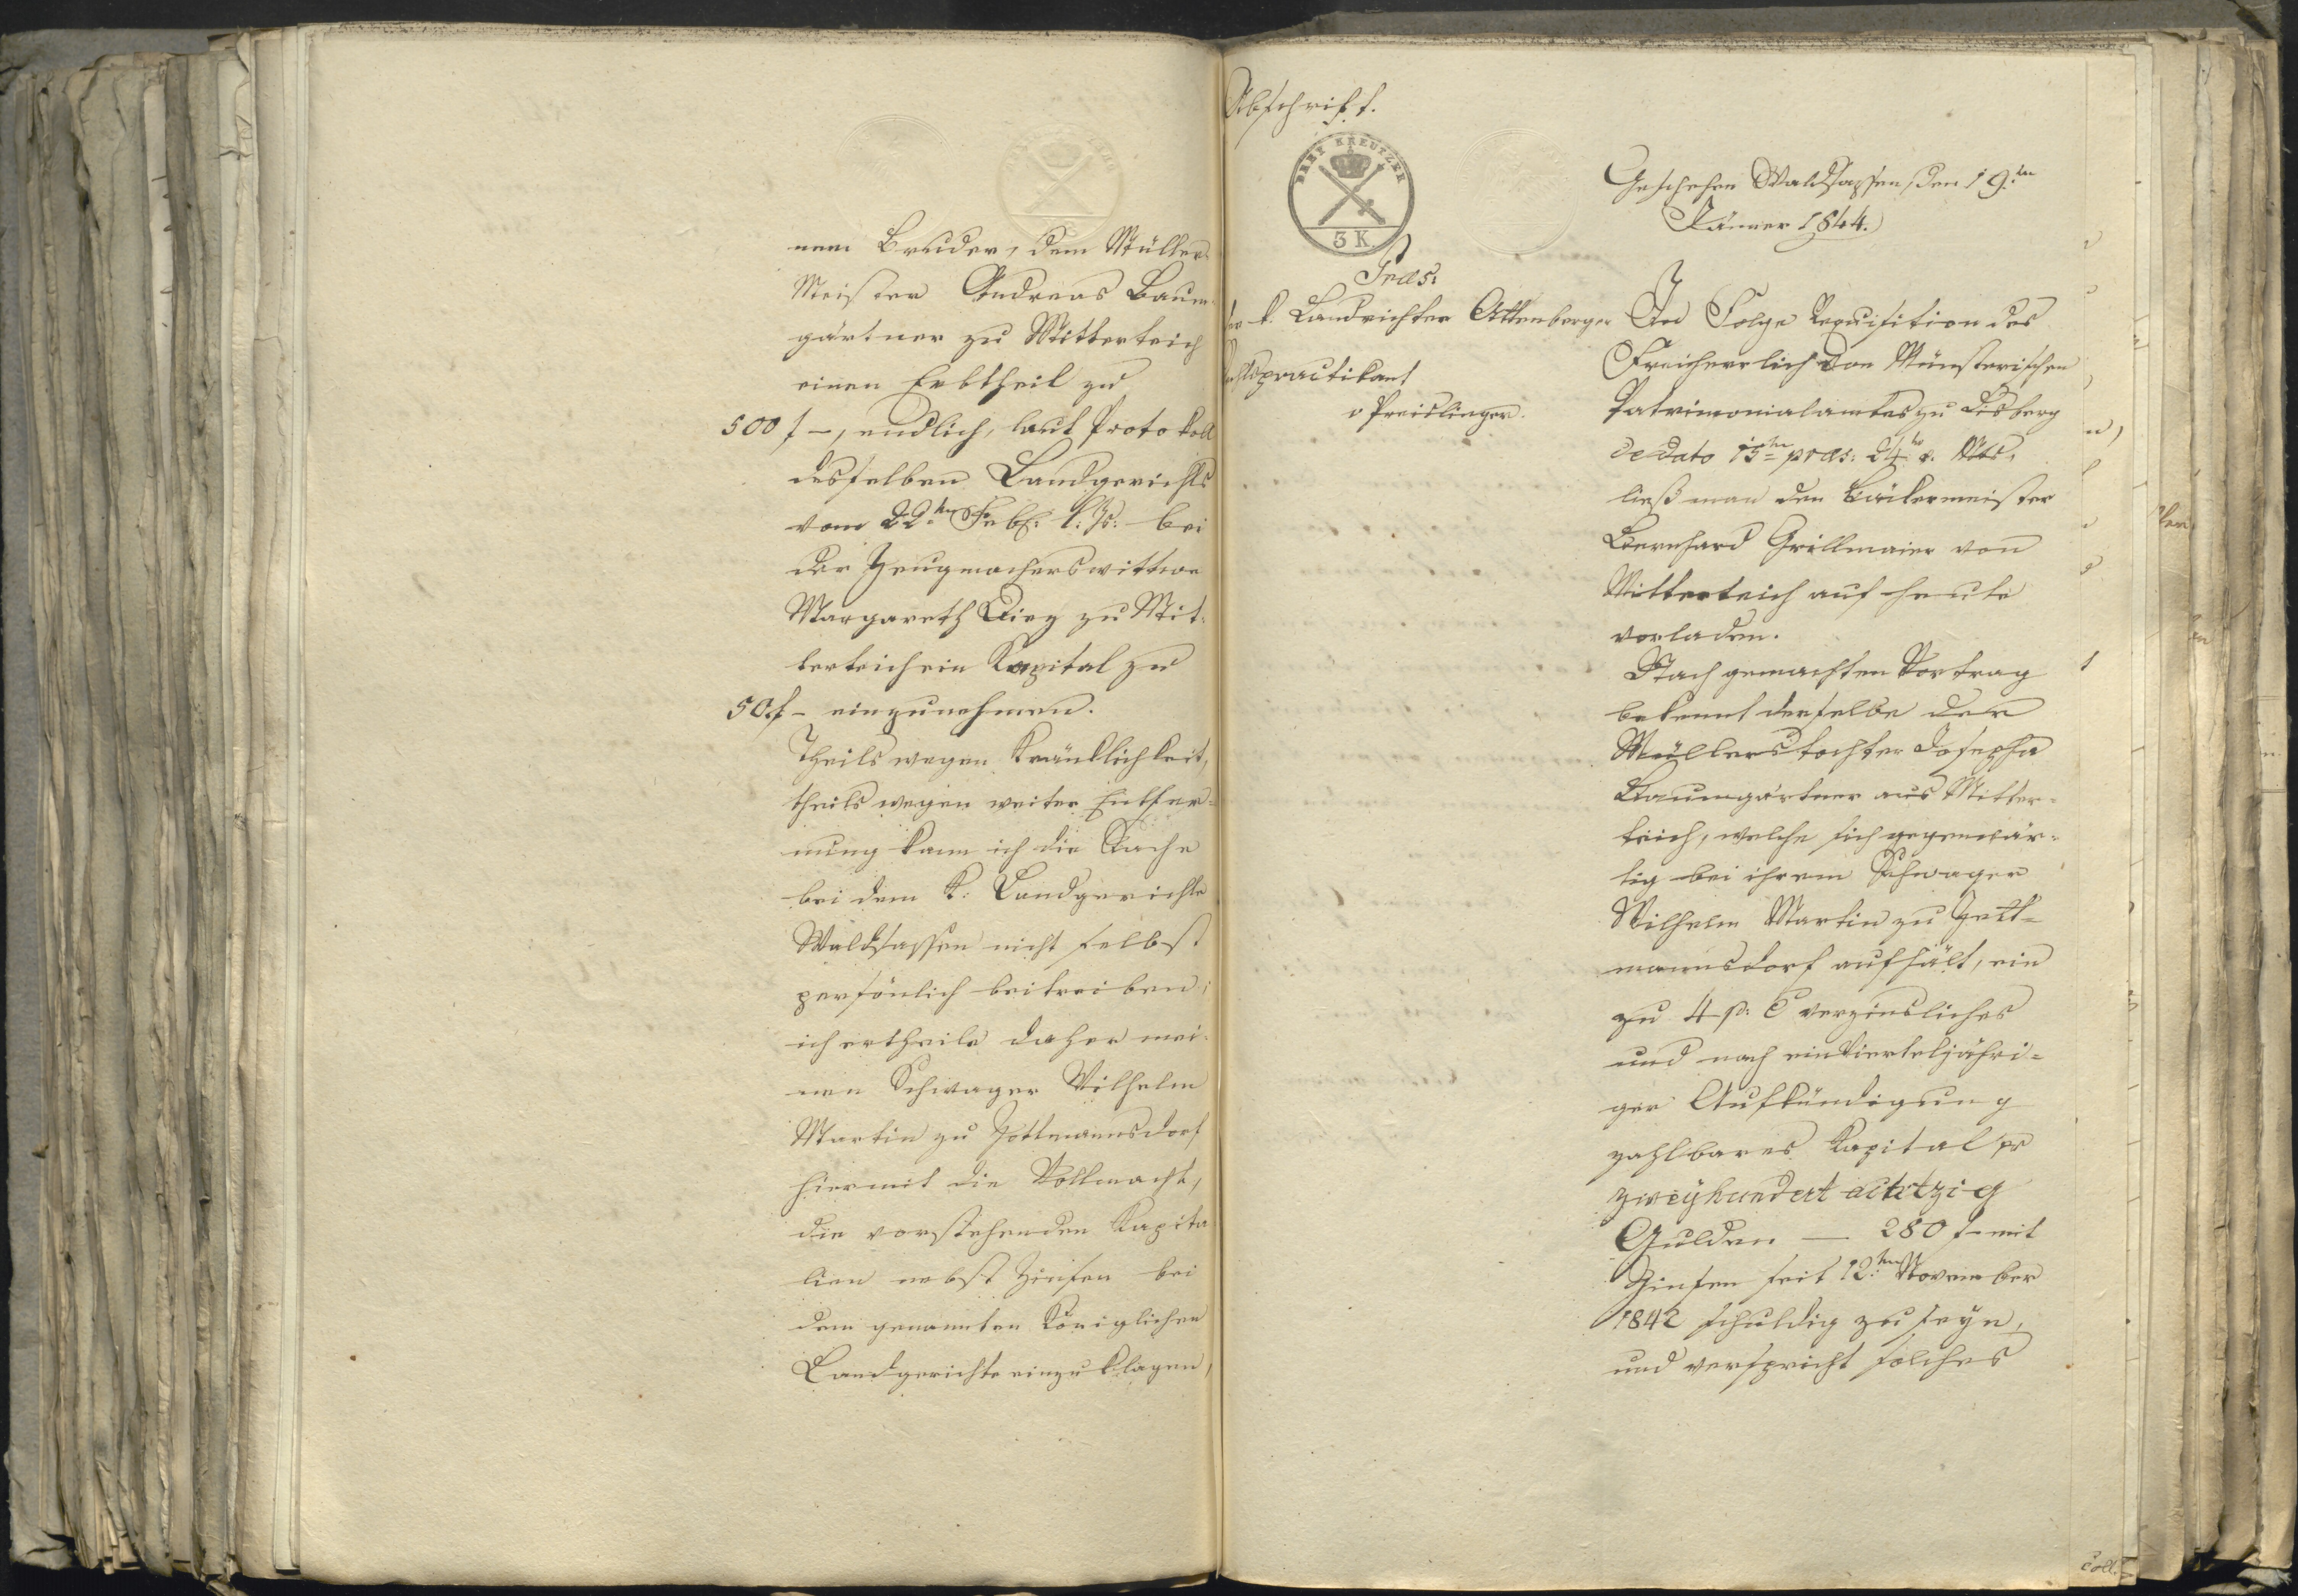 nem Bruder, dem Müller
Meister Andreas Baum
gärtner zu Mitterteich
einen Erbtheil zu
500 f –, endlich, laut Protokoll
desselben Landgerichts
vom 22ten Febr: l: Js: bei
der Zeugmacherswittwe
Margareth zu Mit-
terteich ein Kapital zu
50 f – einzunehmen.
Theils wegen Kränklichkeit,
theils wegen weiter Entfer-
nung kann ich die Sache
bei dem K: Landgerichte
Waldsassen nicht selbst
persönlich beitreiben;
ich ertheile daher mei-
nen Schwager Wilhelm
Martin zu Gottmannsdorf
hiermit die Vollmacht,
die vorstehenden Kapita
lien nebst Zinsen bei
dem genannten Königlichen
Landgerichte einzuklagen,
Abschrift.
DREY KREUTZER
3 K.
Geschehen Waldsassen, den 19.ten
Jänner 1844.
Präs:
k. Landrichter Attenberger
practikant
v Preislinger.
In Folge Requisition des
Freiherrlich von Münsterischen
Patrimonialamtes zu Lisberg
de dato 15ten präs: 24ten v. Mts.
ließ man den Bäckermeister
Bernhard Grillmaier von
Mitterteich auf heute
vorladen.
Nach gemachten Vortrag
bekennt derselbe der
Müllerstochter Josepha
Baumgärtner aus Mitter-
teich, welche sich gegenwär-
tig bei ihrem Schwager
Wilhelm Martin zu Gott-
mannsdorf aufhält, ein
zu 4 p: C verzinsliches
und nach ein Vierteljähri-
ger Aufkündigung
zahlbares Kapital pr
zweyhundert achtzig
Gulden — 280 f – mit
Zinsen seit 12.ten November
1842 schuldig zu seyn,
und verspricht solches
Coll.